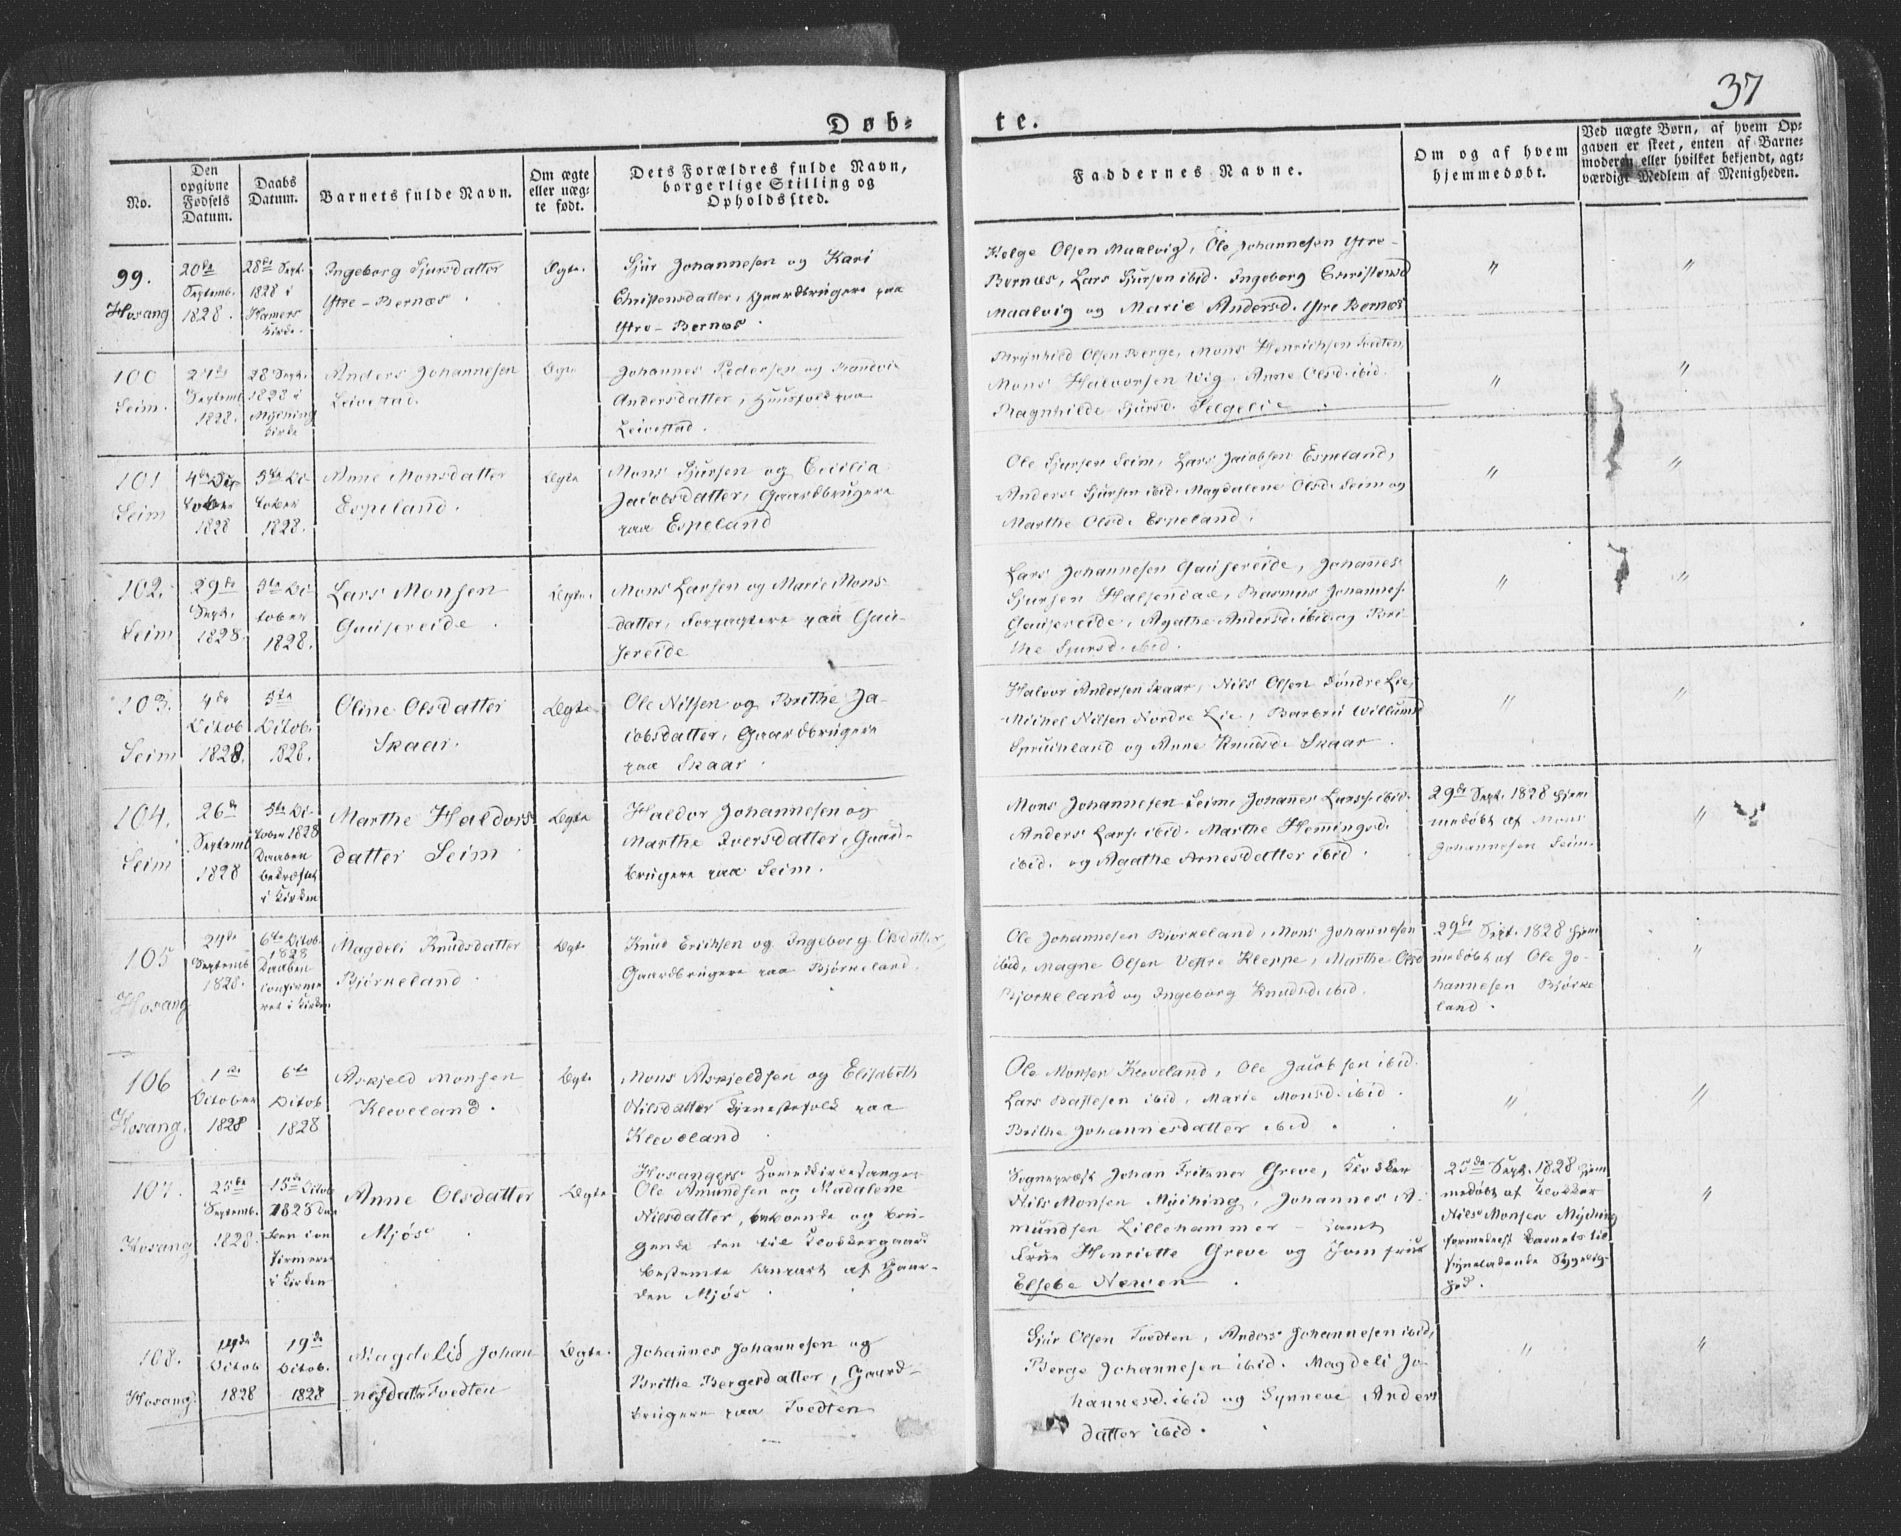 37
Døb-
te.
No.
Den opgivne Fødsels Datum.
Daabs Datum.
Barnets fulde Navn.
Om ægte eller uægte født.
Dets Forældres fulde Navn, borgerlige Stilling og Opholdssted.
Faddernes Navne.
Om og af hvem hjemmedøbt.
Ved uægte Børn, af hvem Op-
gaven er skeet, enten af Barne-
moderen eller hvilket bekjendt, agt-
værdigt Medlem af Menigheden.
99.
Hosang
20de
Septemb.
1828.
28de Sept.
1828 i
Hamers
Kirke
Ingeborg Sjursdatter
Ytre-Bernæs.
Ægte.
Sjur Johannesen og Kari
Christensdatter, Gaardbrugere paa
Ytre-Bernæs.
Helge Olsen Maalvig, Ole Johannesen Ytre-
Bernæs, Lars Sjursen ibid. Ingeborg Christensd
Maalvig og Marie Andersd. Ytre Bernæs
"
"
100
Seim.
Septemb
1828.
28 Sept.
1828 i
Kirke
Anders Johannesen
Leivestad.
Ægte
Johannes Pedersen og
Andersdatter, Huusfolk paa
Leivestad.
Olsen Berge, Mons Henrichsen Tvedten,
Mons Halvorsen Wig, Anne Olsd. ibid.
Ragnhilde Sjursd. Helgelie.
"
"
101
Seim
4de Oc-
tober
1828
5te Oc-
tober
1828.
Anne Monsdatter
Espeland.
Ægte
Mons Sjursen og Cecilia
Jacobsdatter, Gaardbrugere
paa Espeland
Ole Sjursen Seim, Lars Jacobsen Espeland,
Anders Sjursen ibid. Magdalene Olsd. Seim og
Marthe Olsd. Espeland.
"
"
102.
Seim
29de
Sept.
1828.
5te Oc-
tober
1828.
Lars Monsen
Gausereide.
Ægte.
Mons Larsen og Marie Mons-
datter, Forpagtere paa Gau-
sereide
Lars Johannesen Gausereide, Johannes
Sjursen Halsendal, Rasmus Johannes.
Gausereide, Agathe Andersd. ibid. og Bri-
the Sjursd. ibid.
"
"
103.
Seim
4de
Octob
1828.
5te
Octob.
1828.
Oline Olsdatter
Skaar.
Ægte.
Ole Nilsen og Brithe Ja-
cobsdatter, Gaardbrugere
paa Skaar.
Halvor Andersen Skaar, Nils Olsen Søndre Lie,
Michel Nilsen Nordre Lie, Barbru Willumsd
og Anne Knudsd. Skaar.
"
"
104.
Seim
26de
Septemb
1828
5te Oc-
tober 1828
Daaben
bekræftet
i Kirken
Marthe Haldors
datter Seim.
Ægte
Haldor Johannesen og
Marthe Iversdatter, Gaard-
brugere paa Seim.
Mons Johannesen Seim, Johannes Larss. ibid.
Anders Lars. ibid. Marthe Hemingsd.
ibid. og Agathe Arnesdatter ibid.
29de Sept. 1828 hjem
medøbt af Mons
Johannesen Seim.
"
105
Hosang
24de
Septemb
1828.
6te Octob.
1828
Daaben
confirme
ret i Kirken
Magdeli Knudsdatter
Bjørkeland.
Ægte
Knud Erichsen og Ingeborg Olsdatter,
Gaardbrugere paa Bjørkeland.
Ole Johannesen Bjørkeland, Mons Johannesen
ibid, Magne Olsen Vestre Kleppe, Marthe Olsd
Bjørkeland og Ingeborg Knudsd. ibid.
29de Sept. 1828 hjem
medøbt af Ole Jo-
hannesen Bjørke
land.
"
106
Hosang.
1ste
October
1828
6te
Octob
1828
Askjeld Monsen
Kleveland.
Ægte
Mons Askjeldsen og Elisabeth
Nilsdatter tjenestefolk paa
Kleveland.
Ole Monsen Kleveland, Ole Jacobsen ibid.
Lars Baltesen ibid, Marie Monsd. ibid.
Brithe Johannesdatter ibid.
"
"
107.
Hosang
25de
Septemb.
1828.
15de Octob
1828 Daa
ben con
firmeret
i Kirken
Anne Olsdatter
Mjøs.
Ægte
Hosangers Hovedkirkesanger
Ole Amundsen og Madalene
Nilsdatter, beboende og bru-
gende den til Klokkergaard
bestemte Anpart af Gaar-
den Mjøs.
Sognepræst Johan Fritzner Greve, Klokker
Nils Monsen Myching, Johannes A-
mundsen Lillehammer - samt
Frue Henriette Greve og Jomfrue
Elsebe Newen.
25de Sept. 1828 hjem
medøbt af Klokker
Nils Monsen Myching
formedelst Barnets til
syneladende Svagelig-
hed.
"
108.
Hosang.
14de
Octob
1828
19de
Octob.
1828
Magdelid Johan
nesdatr Tvedten
Ægte.
Johannes Johannesen og
Brithe Bergesdatter, Gaard-
brugere paa Tvedten
Sjur Olsen Tvedten, Anders Johannesen ibid,
Berge Johannesen ibid. Magdeli Jo-
hannesd. ibid og Synneve Anders
datter ibid.
"
"